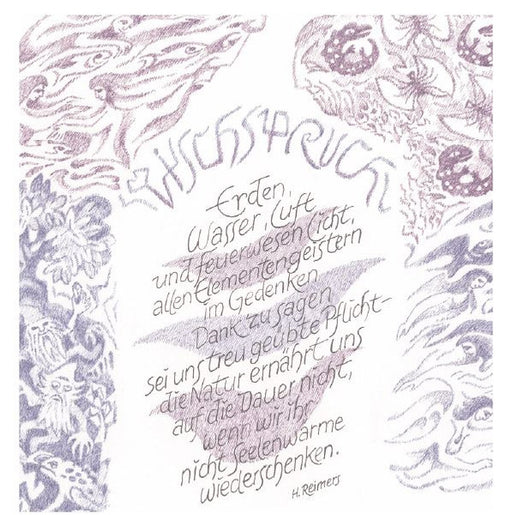 TISCHSPRUCH
Erden,
Wasser, Luft
und feuerwesen Licht,
allen Elementengeistern
im Gedenken
Dank zu sagen
sei uns treu geübte Pflicht-
die Natur ernährt uns
auf die Dauer nicht,
wenn wir ihr
nicht Seelenwärme
wiederschenken.
H. Reimers